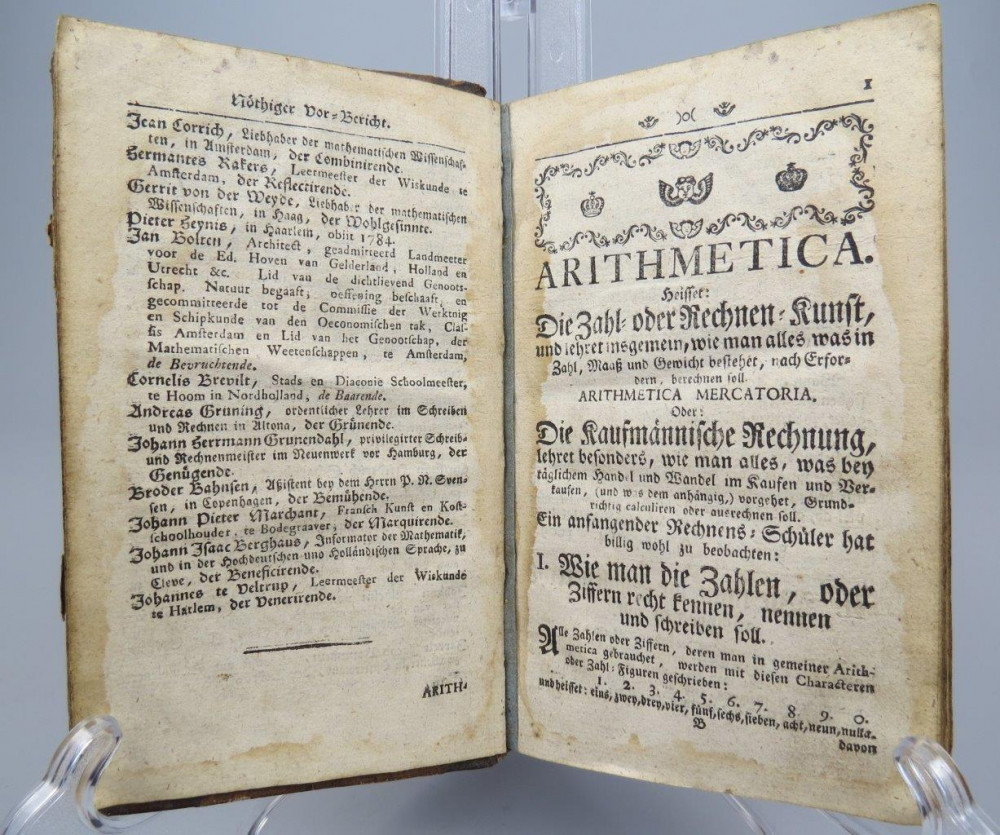 Nöthiger Vor-Bericht.
Jean Corrich, Liebhaber der mathematischen Wissenschaf-
ten, in Amsterdam, der Combinirende.
Hermantes Rakers, Leermeester der Wiskunde te
Amsterdam, der Reflectirende.
Gerrit von der Weyde, Liebhaber der mathematischen
Wissenschaften, in Haag, der Wohlgesinnte.
Pieter Heynis, in Haarlem, obiit 1784.
Jan Bolten, Architect, geadmitteerd Landmeeter
voor de Ed. Hoven van Gelderland, Holland en
Utrecht &c. Lid van de dichtlievend Genoott-
schap. Natuur begaaft, oeffening beschaaft, en
gecommitteerde tot de Commissie der Werktuig
en Schipkunde van den Oeconomischen tak, Clas-
sis Amsterdam en Lid van het Genootschap, der
Mathematischen Weetenschappen, te Amsterdam,
de Bevruchtende.
Cornelis Brevilt, Stads en Diaconie Schoolmeester,
te Hoorn in Nordholland, de Baarende.
Andreas Gruning, ordentlicher Lehrer im Schreiben
und Rechnen in Altona, der Grünende.
Johann Herrmann Grunendahl, privilegirter Schreib-
und Rechnenmeister im Neuenwerk vor Hamburg, der
Genügende.
Broder Bahnsen, Aßistent bey dem Herrn P. N. Sven-
sen, in Copenhagen, der Bemühende.
Johann Pieter Marchant, Fransch Kunst en Kost-
schoolhouder, te Bodegraaver, der Marquirende.
Johann Isaac Berghaus, Informator der Mathematik,
und in der Hochdeutschen und Holländischen Sprache, zu
Cleve, der Beneficirende.
Johannes te Veltrup, Leermeester der Wiskunde
te Harlem, der Venerirende.
ARITH-
1
ARITHMETICA.
Heisset:
Die Zahl- oder Rechnen-Kunst,
und lehret insgemein, wie man alles was in
Zahl, Maaß und Gewicht bestehet, nach Erfor-
dern, berechnen soll.
ARITHMETICA MERCATORIA.
Oder:
Die Kaufmännische Rechnung,
lehret besonders, wie man alles, was bey
täglichem Handel und Wandel im Kaufen und Ver-
kaufen, (und was dem anhängig,) vorgehet, Grund-
richtig calculiren oder ausrechnen soll.
Ein anfangender Rechnens-Schüler hat
billig wohl zu beobachten:
I. Wie man die Zahlen, oder
Ziffern recht kennen, nennen
und schreiben soll.
Alle Zahlen oder Ziffern, deren man in gemeiner Arith-
metica gebrauchet, werden mit diesen Characteren
oder Zahl-Figuren geschrieben:
1. 2. 3. 4. 5. 6. 7. 8. 9. 0.
und heisset: eins, zwey, drey, vier, fünf, sechs, sieben, acht, neun, nulla.
davon